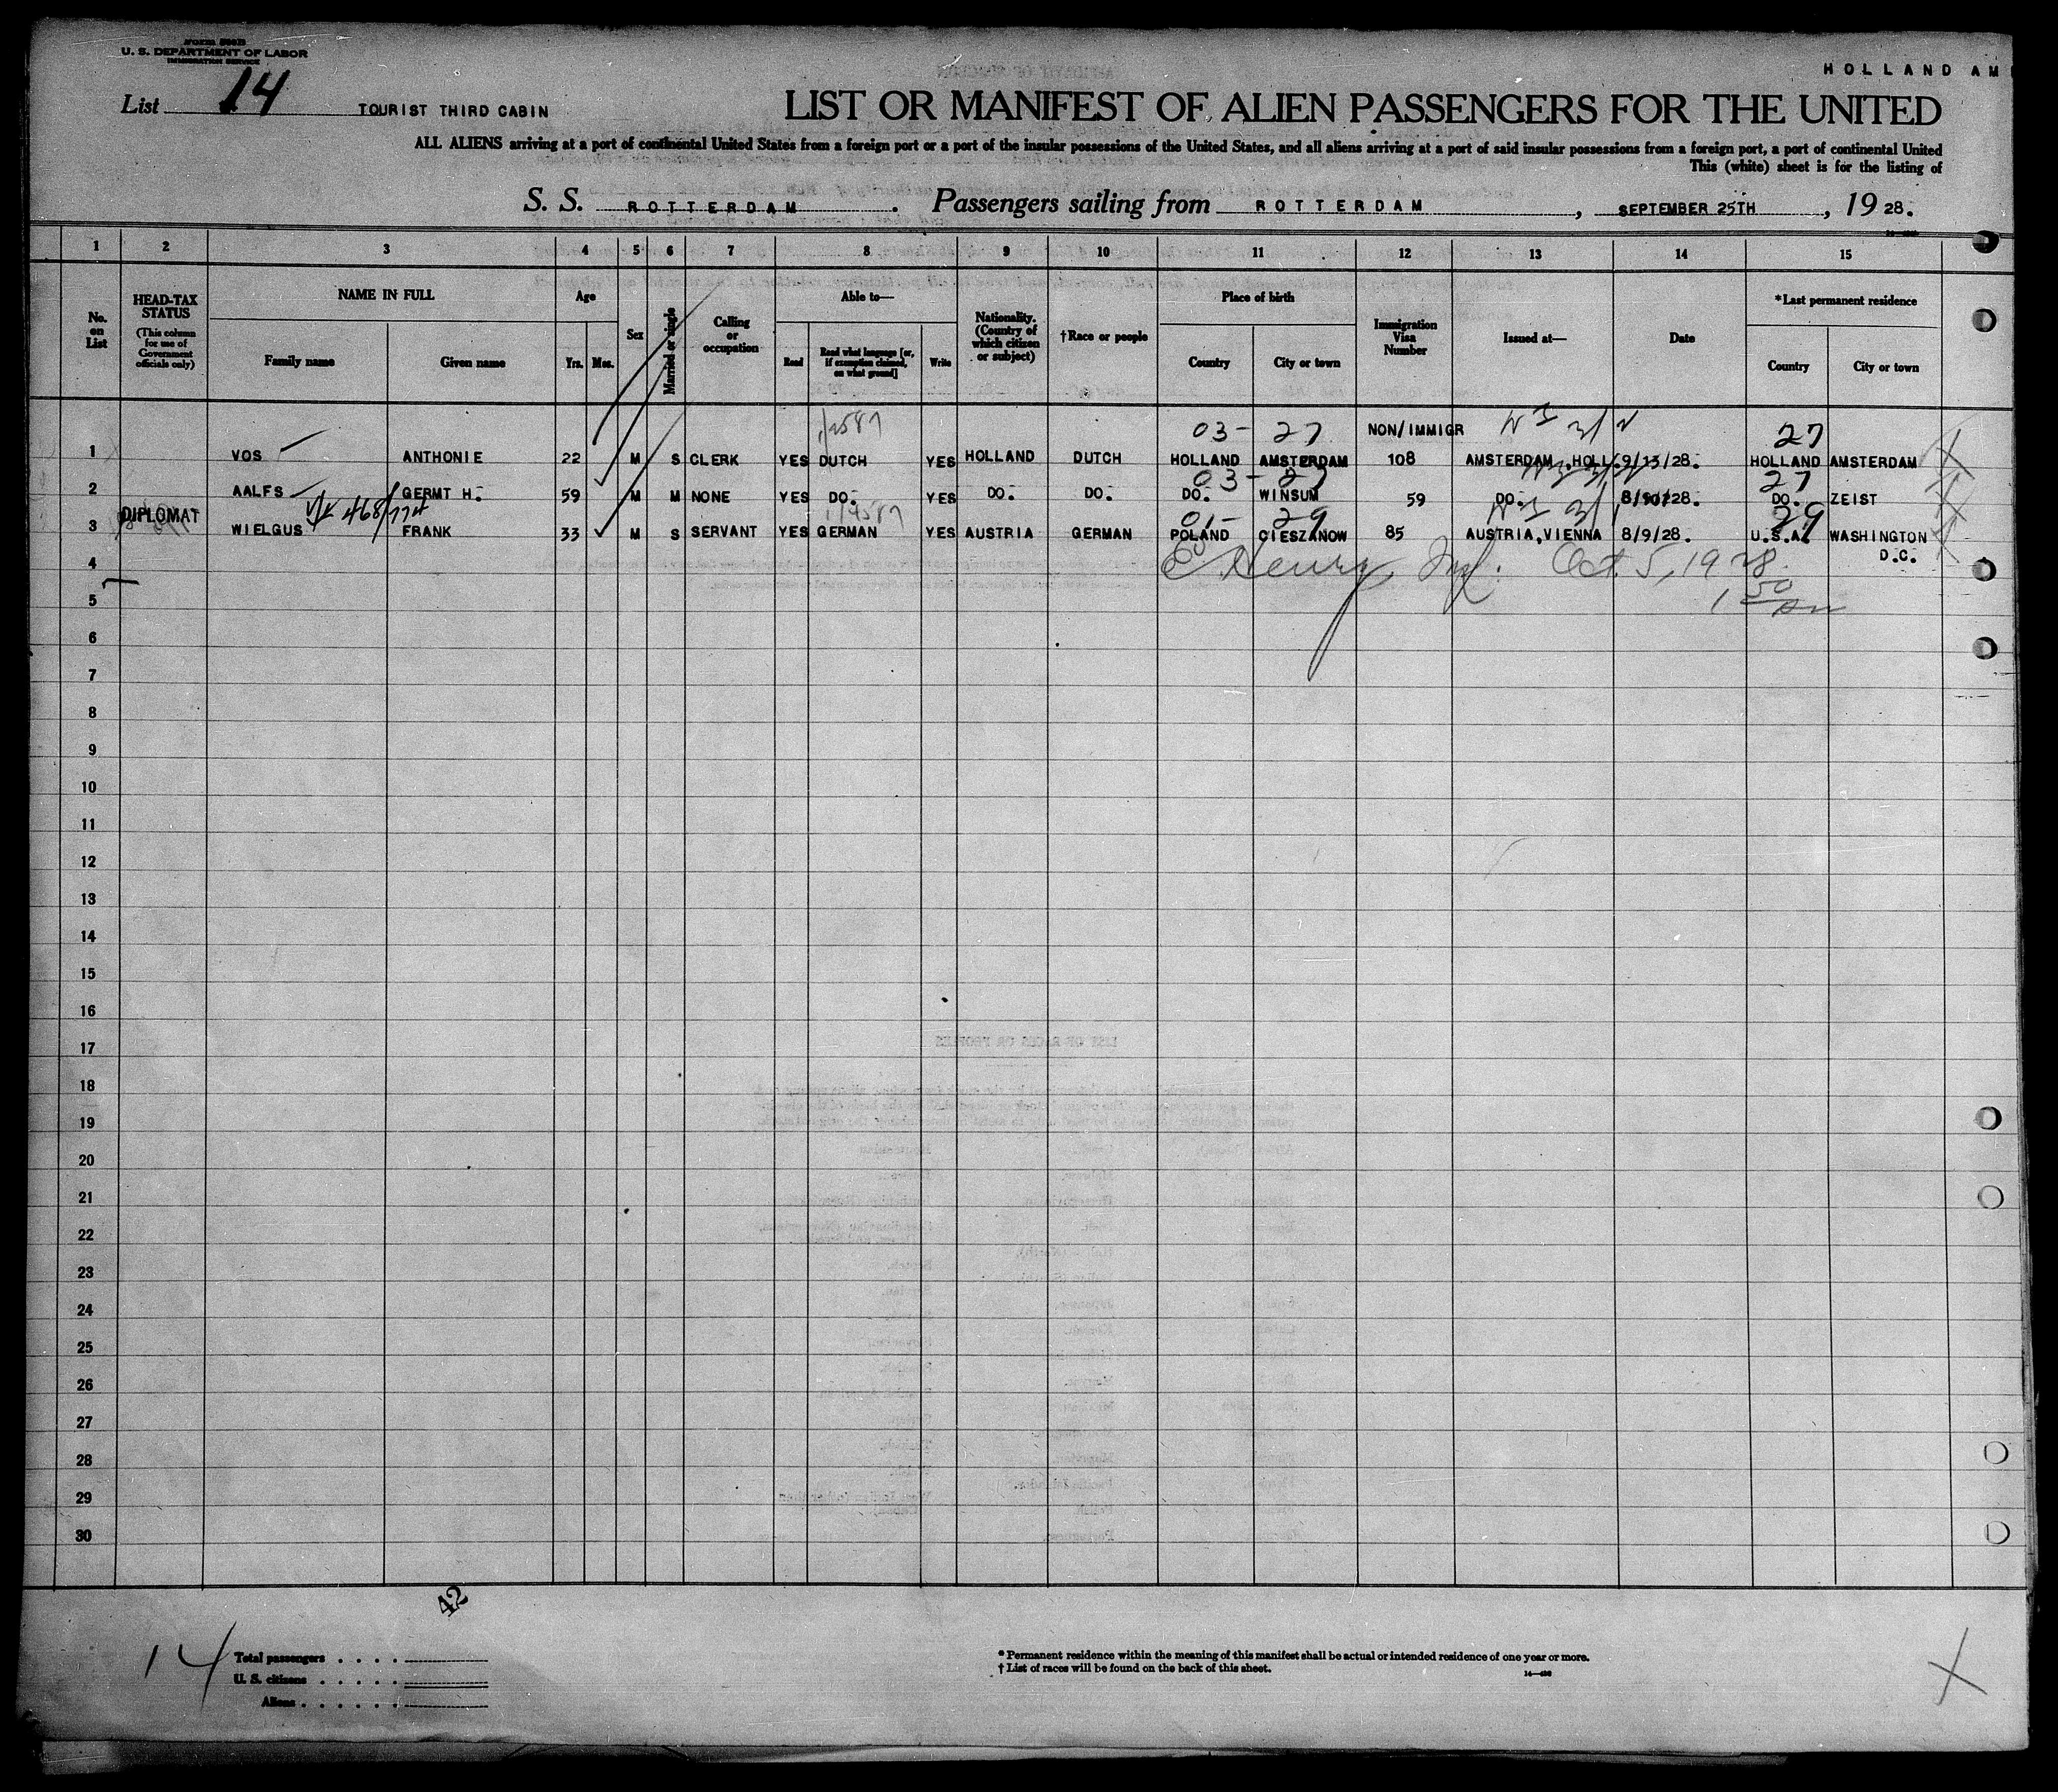 U. S. DEPARTMENT OF LABOR
IMMIGRATION SERVICE
HOLLAND AM
List 14 TOURIST THIRD CABIN
LIST OR MANIFEST OF ALIEN PASSENGERS FOR THE UNITED
ALL ALIENS arriving at a port of continental United States from a foreign port or a port of the insular possessions of the United States, and all aliens arriving at a port of said insular possessions from a foreign port, a port of continental United
This (white) sheet is for the listing of
S. S. ROTTERDAM . Passengers sailing from ROTTERDAM , SEPTEMBER 25TH , 19 28.
1 2 3 4 5 6 7 8 9 10 11 12 13 14 15
No. on List
HEAD-TAX STATUS
(This column for use of Government officials only)
NAME IN FULL
Family name Given name
Age
Yrs. Mos.
Sex
Married or single
Calling or occupation
Able to—
Read Read what language [or, if exemption claimed, on what ground] Write
Nationality. (Country of which citizen or subject)
†Race or people
Place of birth
Country City or town
Immigration Visa Number
Issued at—
Date
*Last permanent residence
Country City or town
03- 27 NON/IMMIGR 27
1 VOS ANTHONIE 22 M S CLERK YES DUTCH YES HOLLAND DUTCH HOLLAND AMSTERDAM 108 AMSTERDAM.HOLL. 9/13/28. HOLLAND AMSTERDAM
03- 27 27
2 AALFS GERMT H. 59 M M NONE YES DO. YES DO. DO. DO. WINSUM 59 DO. DO. ZEIST
DIPLOMAT 468/774 01- 29 29
3 WIELGUS FRANK 33 M S SERVANT YES GERMAN YES AUSTRIA GERMAN POLAND CIESZANOW 85 AUSTRIA,VIENNA 8/9/28. U.S.A. WASHINGTON D.C.
4 Henry Oct. 5, 1928.
5 1 50
6
7
8
9
10
11
12
13
14
15
16
17
18
19
20
21
22
23
24
25
26
27
28
29
30
42
14
Total passengers
U. S. citizens
Aliens
* Permanent residence within the meaning of this manifest shall be actual or intended residence of one year or more.
† List of races will be found on the back of this sheet.